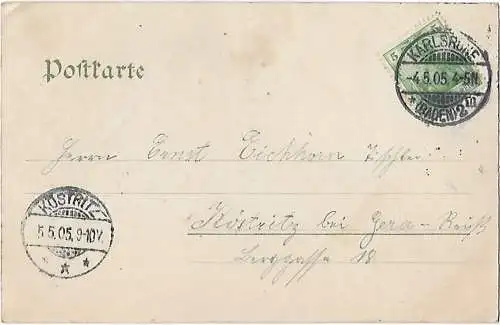 Postkarte
5
KARLSRUHE
-4.5.05. 4-5N.
* (BADEN) 2 *
Herrn Ernst Eichhorn Tischler
KÖSTRITZ
5.5.05. 9-10V.
* * *
Köstritz bei Gera-Reuß
Berggasse 18